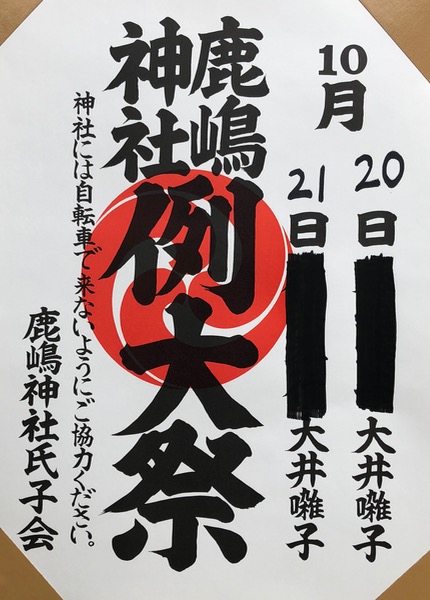 10月
20日 大井囃子
21日 大井囃子
鹿嶋
神社
例大祭
神社には自転車で来ないようにご協力ください。
鹿嶋神社氏子会